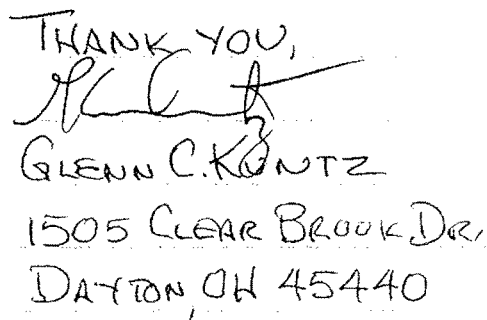 THANK YOU,
GLENN C. KUNTZ
1505 CLEAR BROOK DR.
DAYTON, OH 45440